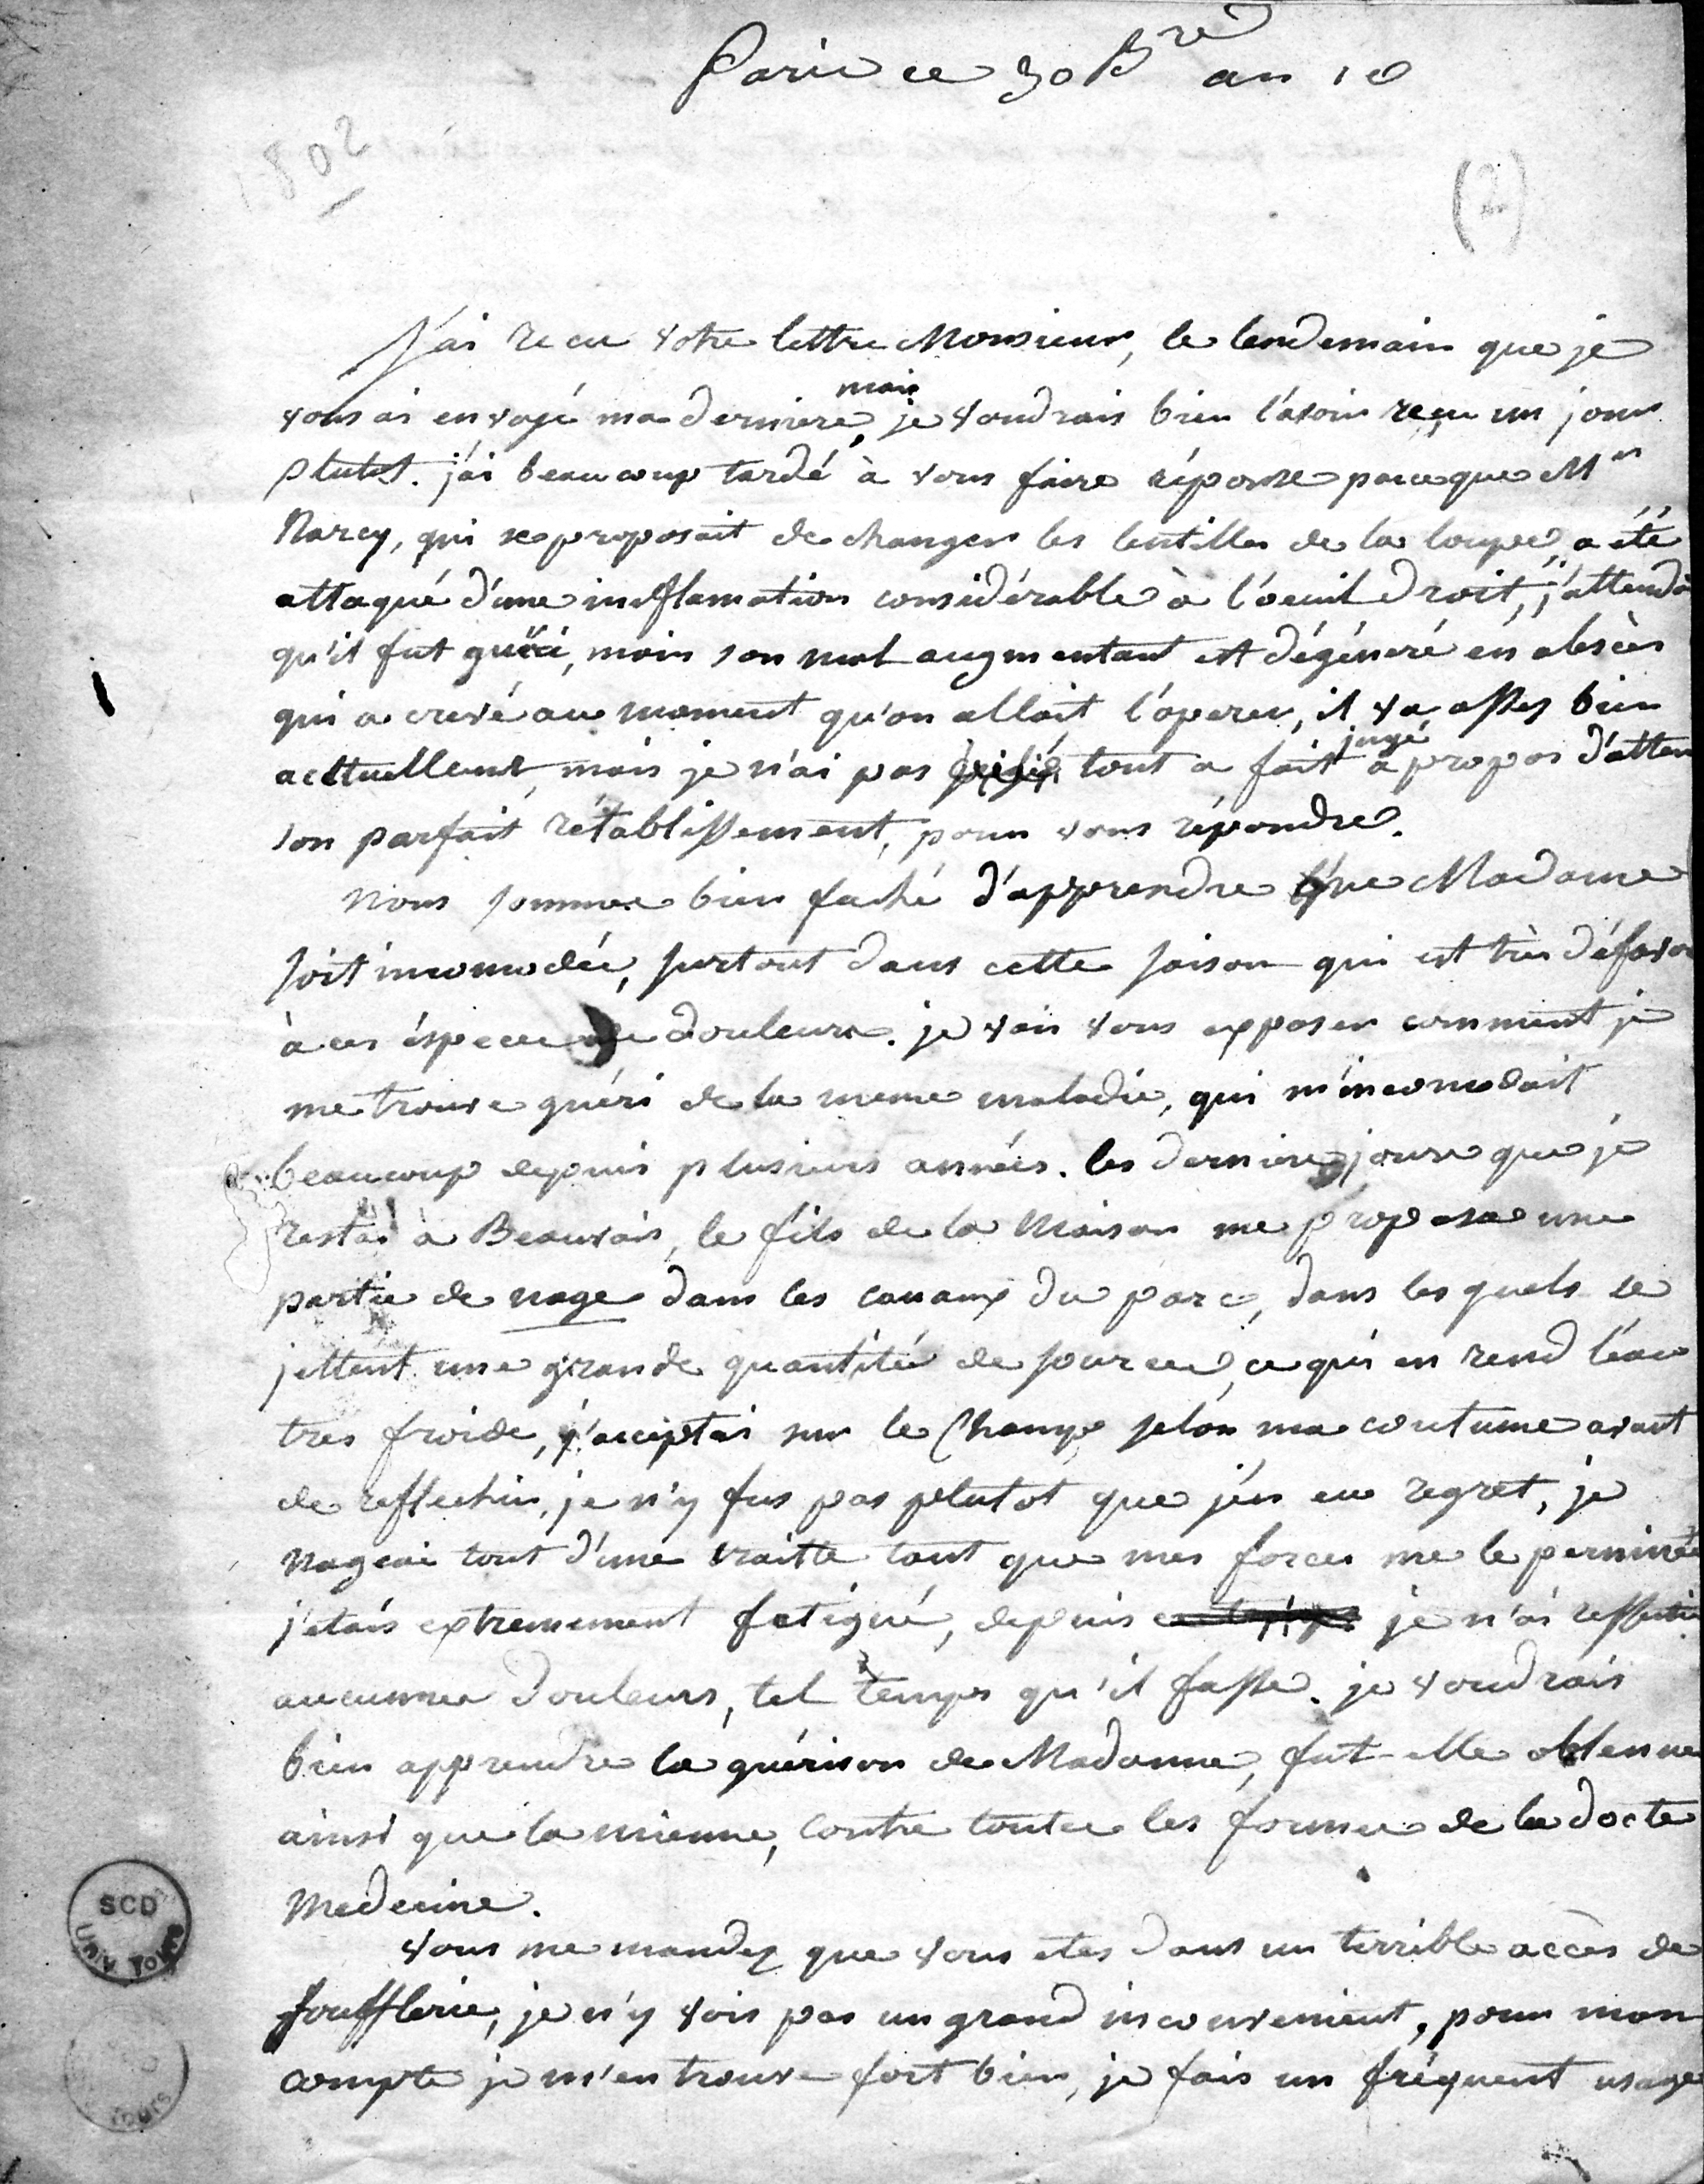 Paris ce 30 B.re an 10
1802
(2)
J'ai recu votre lettre Monsieur, le lendemain que je
vous ai envoyé ma derniere, mais je voudrais bien l'avoir reçu un jour
plutot. j'ai beaucoup tardé à vous faire réponse parceque Mr
Narcy, qui se proposait de changer les lentilles de la loupe, a été
attaqué d'une inflamation considérable à l'oeuil droit, j'attendois
qu'il fut guéri, mais son mal augmentant est dégénéré en abscès
qui a crevé au moment qu'on allait l'operer, il va asses bien
acttuellement, mais je n'ai pas tout a fait jugé a propos d'atten
son parfait rétablissement, pour vous répondre.
Nous sommes bien faché d'apprendre que Madame
soit incomodée, surtout dans cette saison qui est très défavo
à ces éspeces de douleurs. je vais vous exposer comment je
me trouve guéri de la meme maladie, qui m'incomodait
beaucoup depuis plusieurs années. les derniers jours que je
restai à Beauvais, le fils de la Maison me proposa une
partie de nage dans les canaux du parc, dans les quels se
jettent une grande quantité de sources, ce qui en rend l'eau
tres froide, j'acceptai sur le champ selon ma coutume avant
de refflechir, je n'y fus pas plutot que j'en eu regret, je
nageai tout d'une traitte tant que mes forces me le permirent
j'etais extremement fatigué, depuis je n'ai ressenti
aucunnes douleurs, tel temps qu'il fasse. je voudrais
bien apprendre la guérison de Madame, fut-elle obtenue
ainsi que la mienne, contre toutes les formes de la docte
Medecine.
vous me mandez que vous etes dans un terrible accès de
soufflerie, je n'y vois pas un grand inconvenient, pour mon
compte je m'en trouve fort bien, je fais un fréquent usage
SCD
UNIV TOURS
TOURS